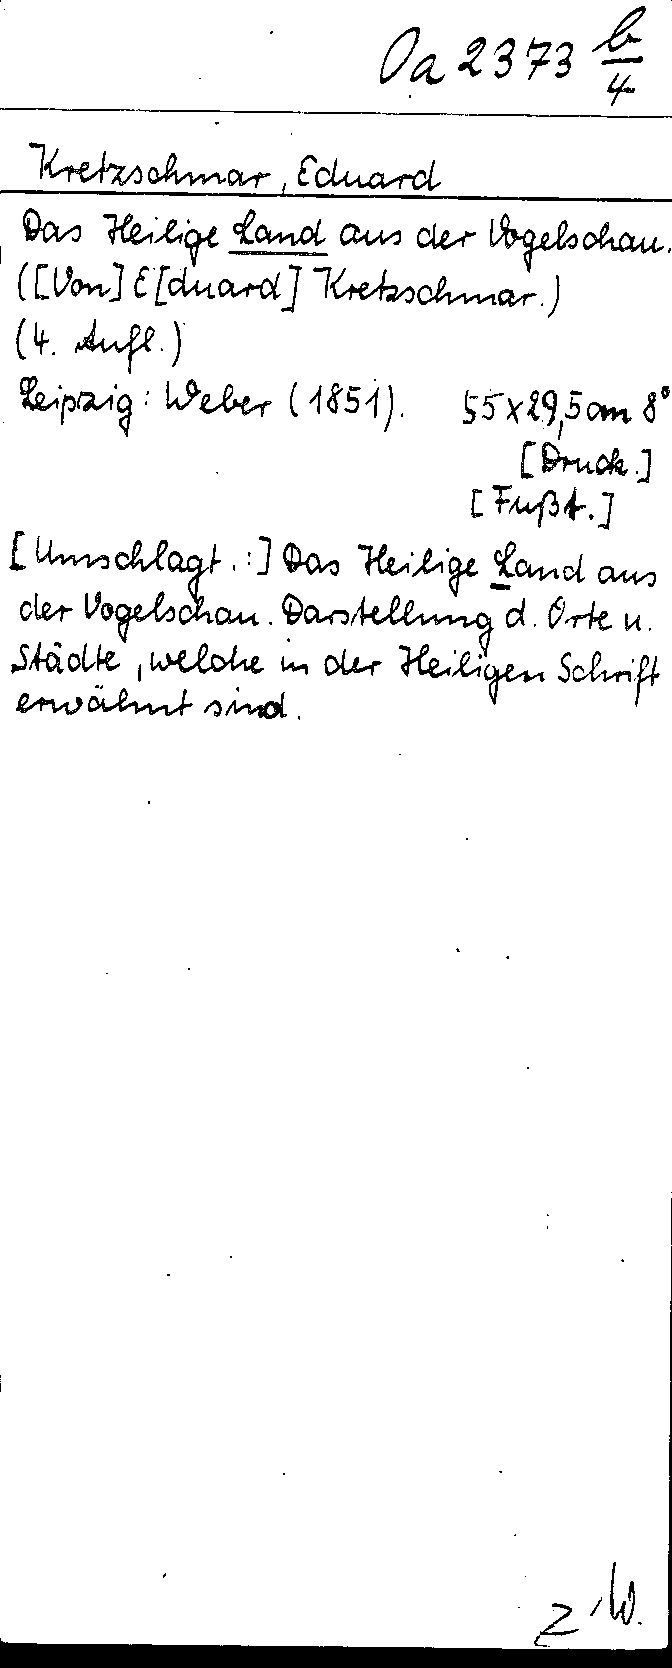 Oa 2373 b/4
Kretzschmar, Eduard
Das Heilige Land aus der Vogelschau.
([Von] E[duard] Kretzschmar.)
(4. Aufl.)
Leipzig: Weber (1851). 55x29,5cm 8°
[Druck.]
[Fußt.]
[Umschlagt.:] Das Heilige Land aus
der Vogelschau. Darstellung d. Orte u.
Städte, welche in der Heiligen Schrift
erwähnt sind.